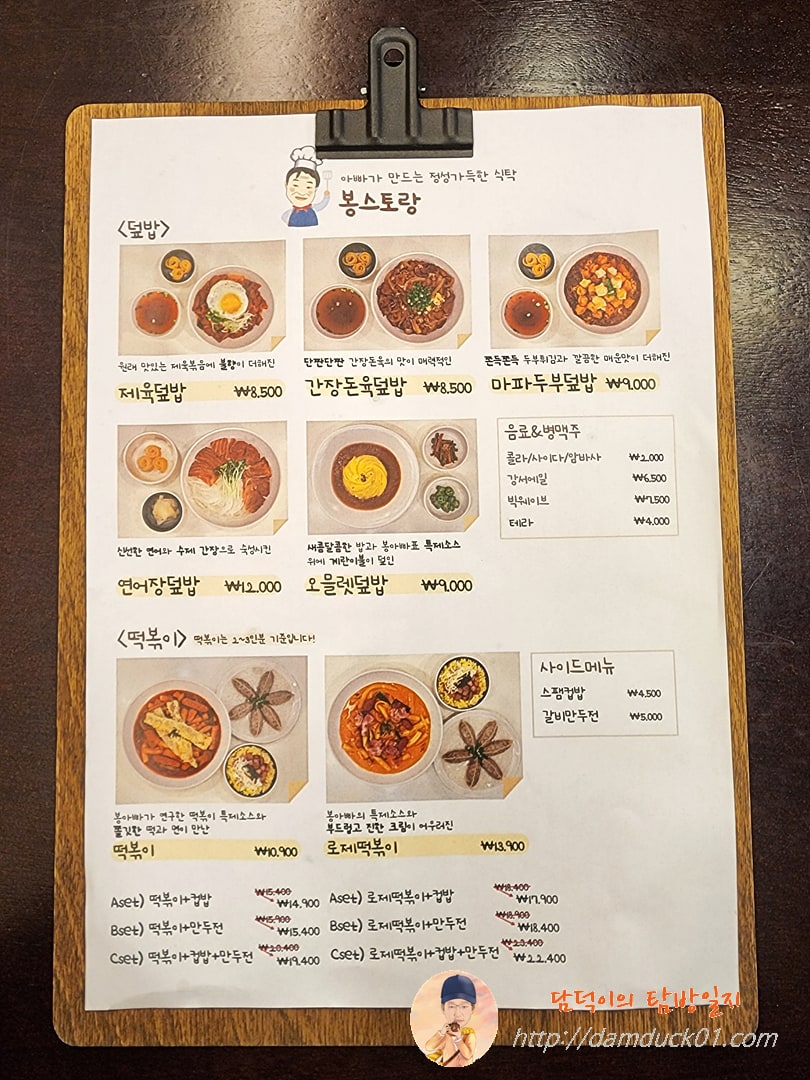 아빠가 만드는 정성가득한 식탁
봉스토랑
<덮밥>
원래 맛있는 제육볶음에 불향이 더해진
제육덮밥 ₩8.500
단짠단짠 간장돈육의 맛이 매력적인
간장돈육덮밥 ₩8.500
쫀득쫀득 두부튀김과 깔끔한 매운맛이 더해진
마파두부덮밥 ₩9.000
신선한 연어와 수제 간장으로 숙성시킨
연어장덮밥 ₩12.000
새콤달콤한 밥과 봉아빠표 특제소스
위에 계란이불이 덮인
오믈렛덮밥 ₩9.000
음료&병맥주
콜라/사이다/암바사 ₩2.000
강서에일 ₩6.500
빅웨이브 ₩7.500
테라 ₩4.000
<떡볶이> 떡볶이는 2~3인분 기준입니다!
봉아빠가 연구한 떡볶이 특제소스와
쫄깃한 떡과 면이 만난
떡볶이 ₩10.900
봉아빠의 특제소스와
부드럽고 진한 크림이 어우러진
로제떡볶이 ₩13.900
사이드메뉴
스팸컵밥 ₩4,500
갈비만두전 ₩5,000
Aset) 떡볶이+컵밥 ₩15.400 ₩14.900
Bset) 떡볶이+만두전 ₩15.900 ₩15.400
Cset) 떡볶이+컵밥+만두전 ₩20.400 ₩19.400
Aset) 로제떡볶이+컵밥 ₩18.400 ₩17.900
Bset) 로제떡볶이+만두전 ₩18.900 ₩18.400
Cset) 로제떡볶이+컵밥+만두전 ₩23.400 ₩22.400
담덕이의 탐방일지
http://damduck01.com